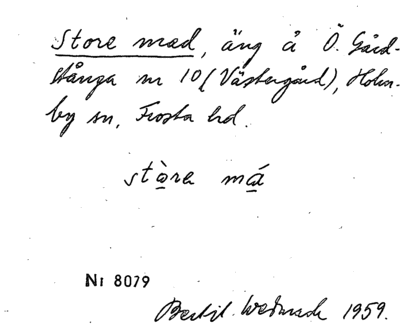 Store mad, äng å Ö. Gård-
stånga nr 10 (Västergård), Holm-
by sn, Frosta hd.
stòra má
Nr 8079
Bertil 1959.